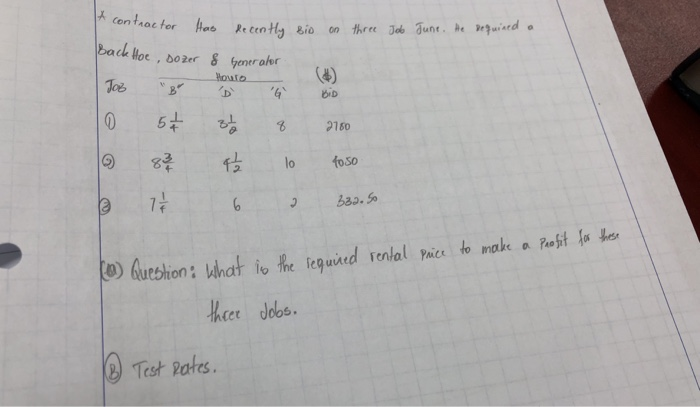 A contractor Has Recently Bid on three Job June. He required a
Back Hoe, Dozer & Generator
Hours ($)
Job "B" 'D' 'G' Bid
① 5 1/4 3 1/2 8
② 8 3/4 4 1/2 10 4050
③ 7 1/4 6 2
(a) Question: What is the required rental price to make a Profit for these
three Jobs.
Ⓑ Test Rates.